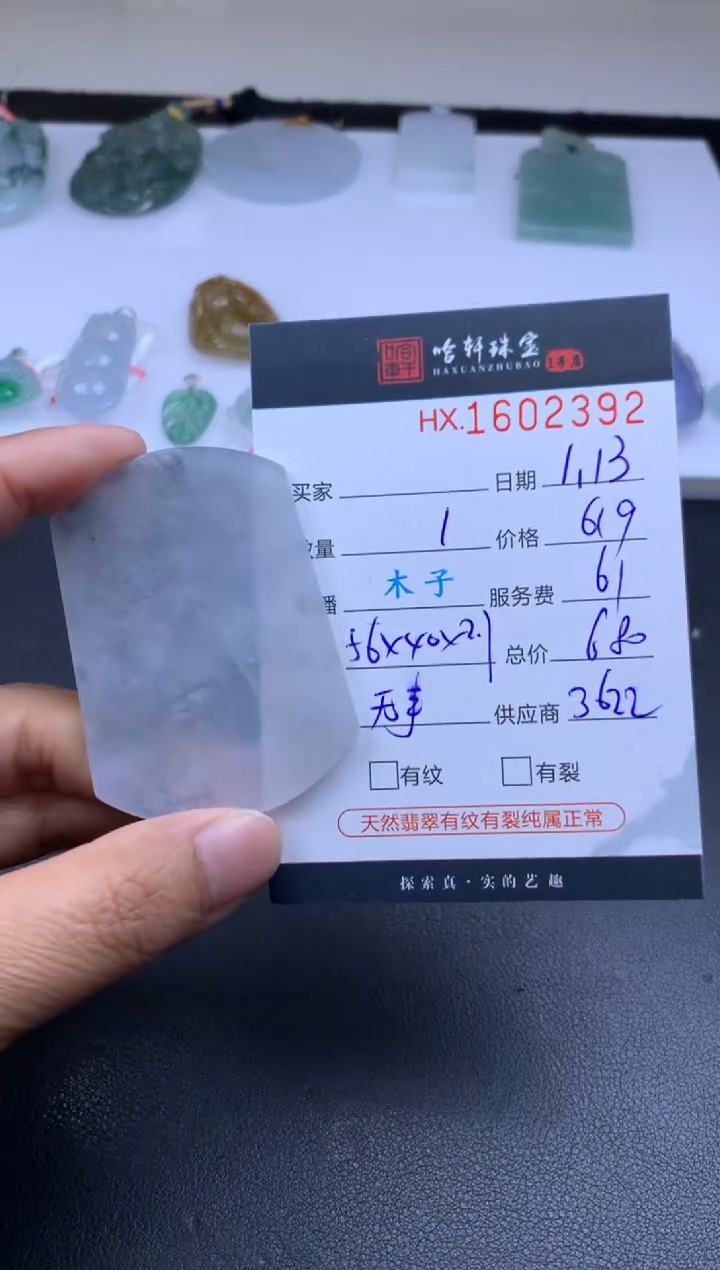 哈轩珠宝 1号店
HAXUANZHUBAO
HX.1602392
买家 日期 1.13
数量 1 价格 619
播 木子 服务费 61
56x40x2.1 总价 680
无事 供应商 3622
有纹 有裂
天然翡翠有纹有裂纯属正常
探索真·实的艺趣